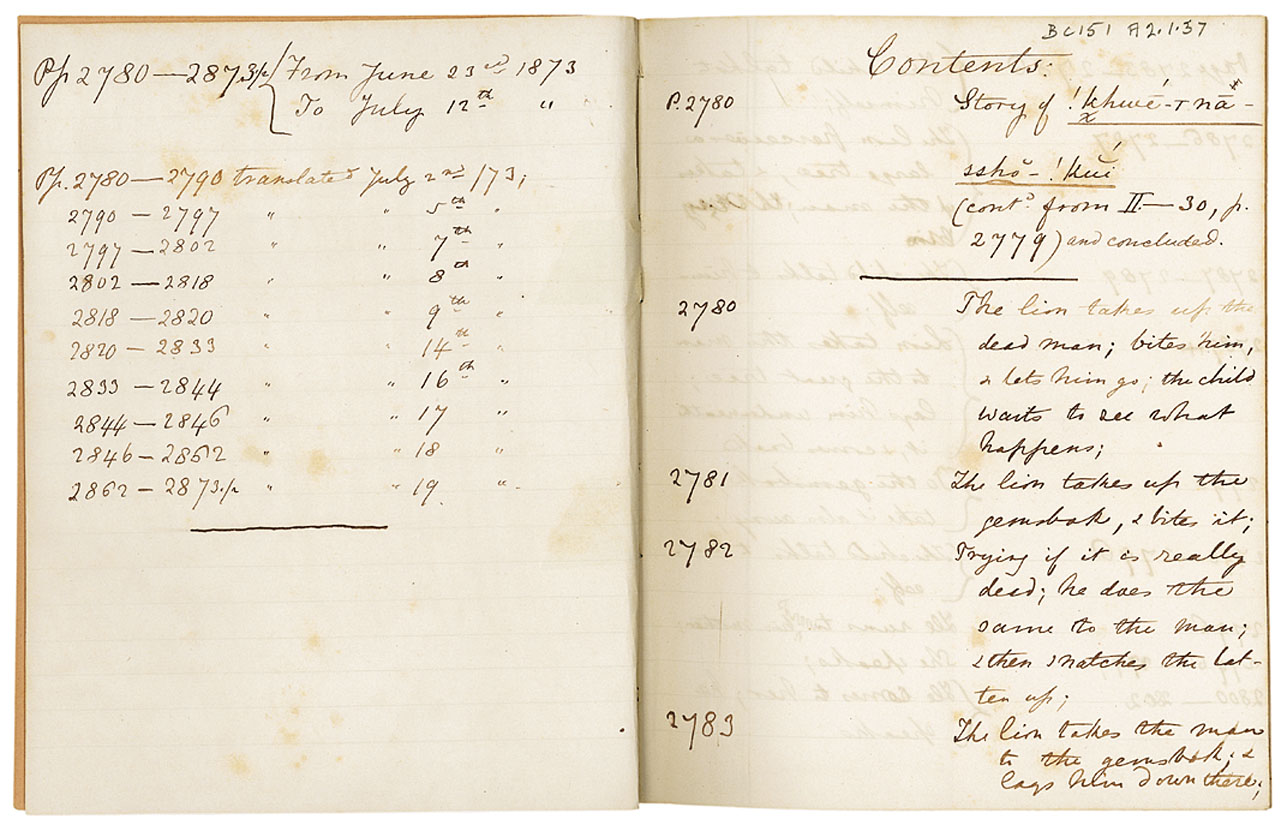 Pp 2780—2873½ From June 23rd 1873
To July 12th "
Pp. 2780—2790 translated July 2nd /73;
2790—2797 " " 5th "
2797—2802 " " 7th "
2802—2818 " " 8th "
2818—2820 " " 9th "
2820—2833 " " 14th "
2833—2844 " 16th "
2844—2846 " " 17 "
2846—2862 " " 18 "
2862—2873½ " " 19 "
BC151 A2.1.37
Contents:
P. 2780 Story of
sshŏ-!kuí
(contd from II—30, p.
2779) and concluded.
2780 The lion takes up the
dead man; bites him,
& lets him go; the child
waits to see what
happens;
2781 The lion takes up the
gemsbok, & bites it;
2782 Trying if it is really
dead; he does the
same to the man;
& then snatches the lat-
ter up;
2783 The lion takes the man
to the gemsbok; &
lays him down there;